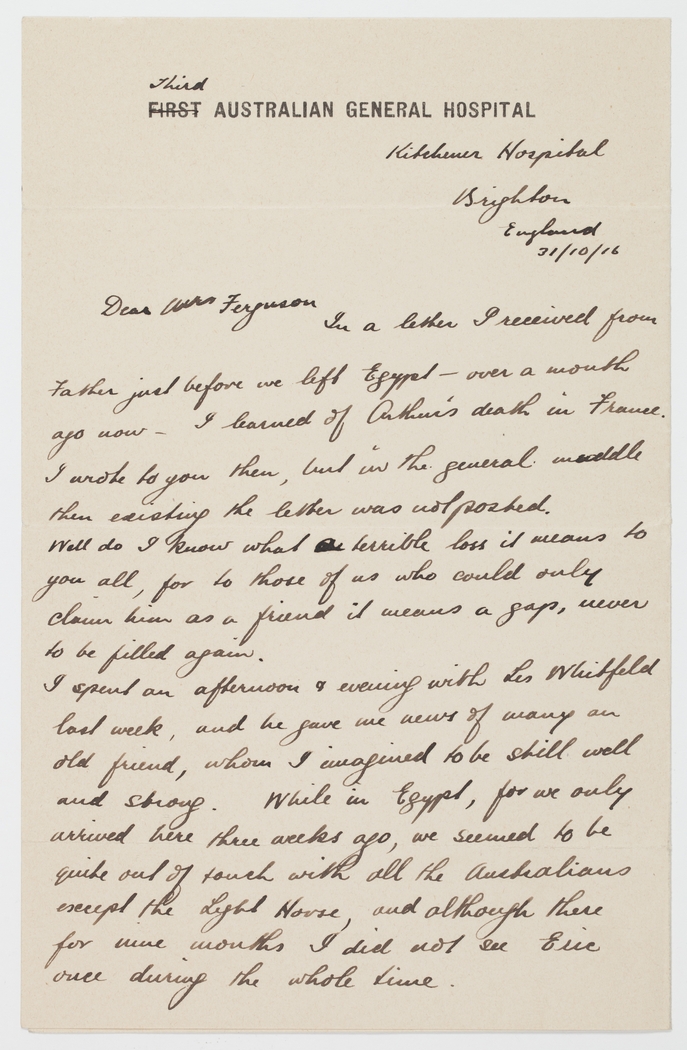 Third
FIRST AUSTRALIAN GENERAL HOSPITAL
Kitchener Hospital
Brighton
England
31/10/16
Dear Mrs Ferguson
In a letter I received from
Father just before we left Egypt – over a month
ago now – I learned of Arthur's death in France.
I wrote to you then, but in the general muddle
then existing the letter was not posted.
Well do I know what a terrible loss it means to
you all, for to those of us who could only
claim him as a friend it means a gap, never
to be filled again.
I spent an afternoon & evening with Les Whitfeld
last week, and he gave me news of many an
old friend, whom I imagined to be still well
and strong. While in Egypt, for we only
arrived here three weeks ago, we seemed to be
quite out of touch with all the Australians
except the Light Horse, and although there
for nine months I did not see Eric
once during the whole time.